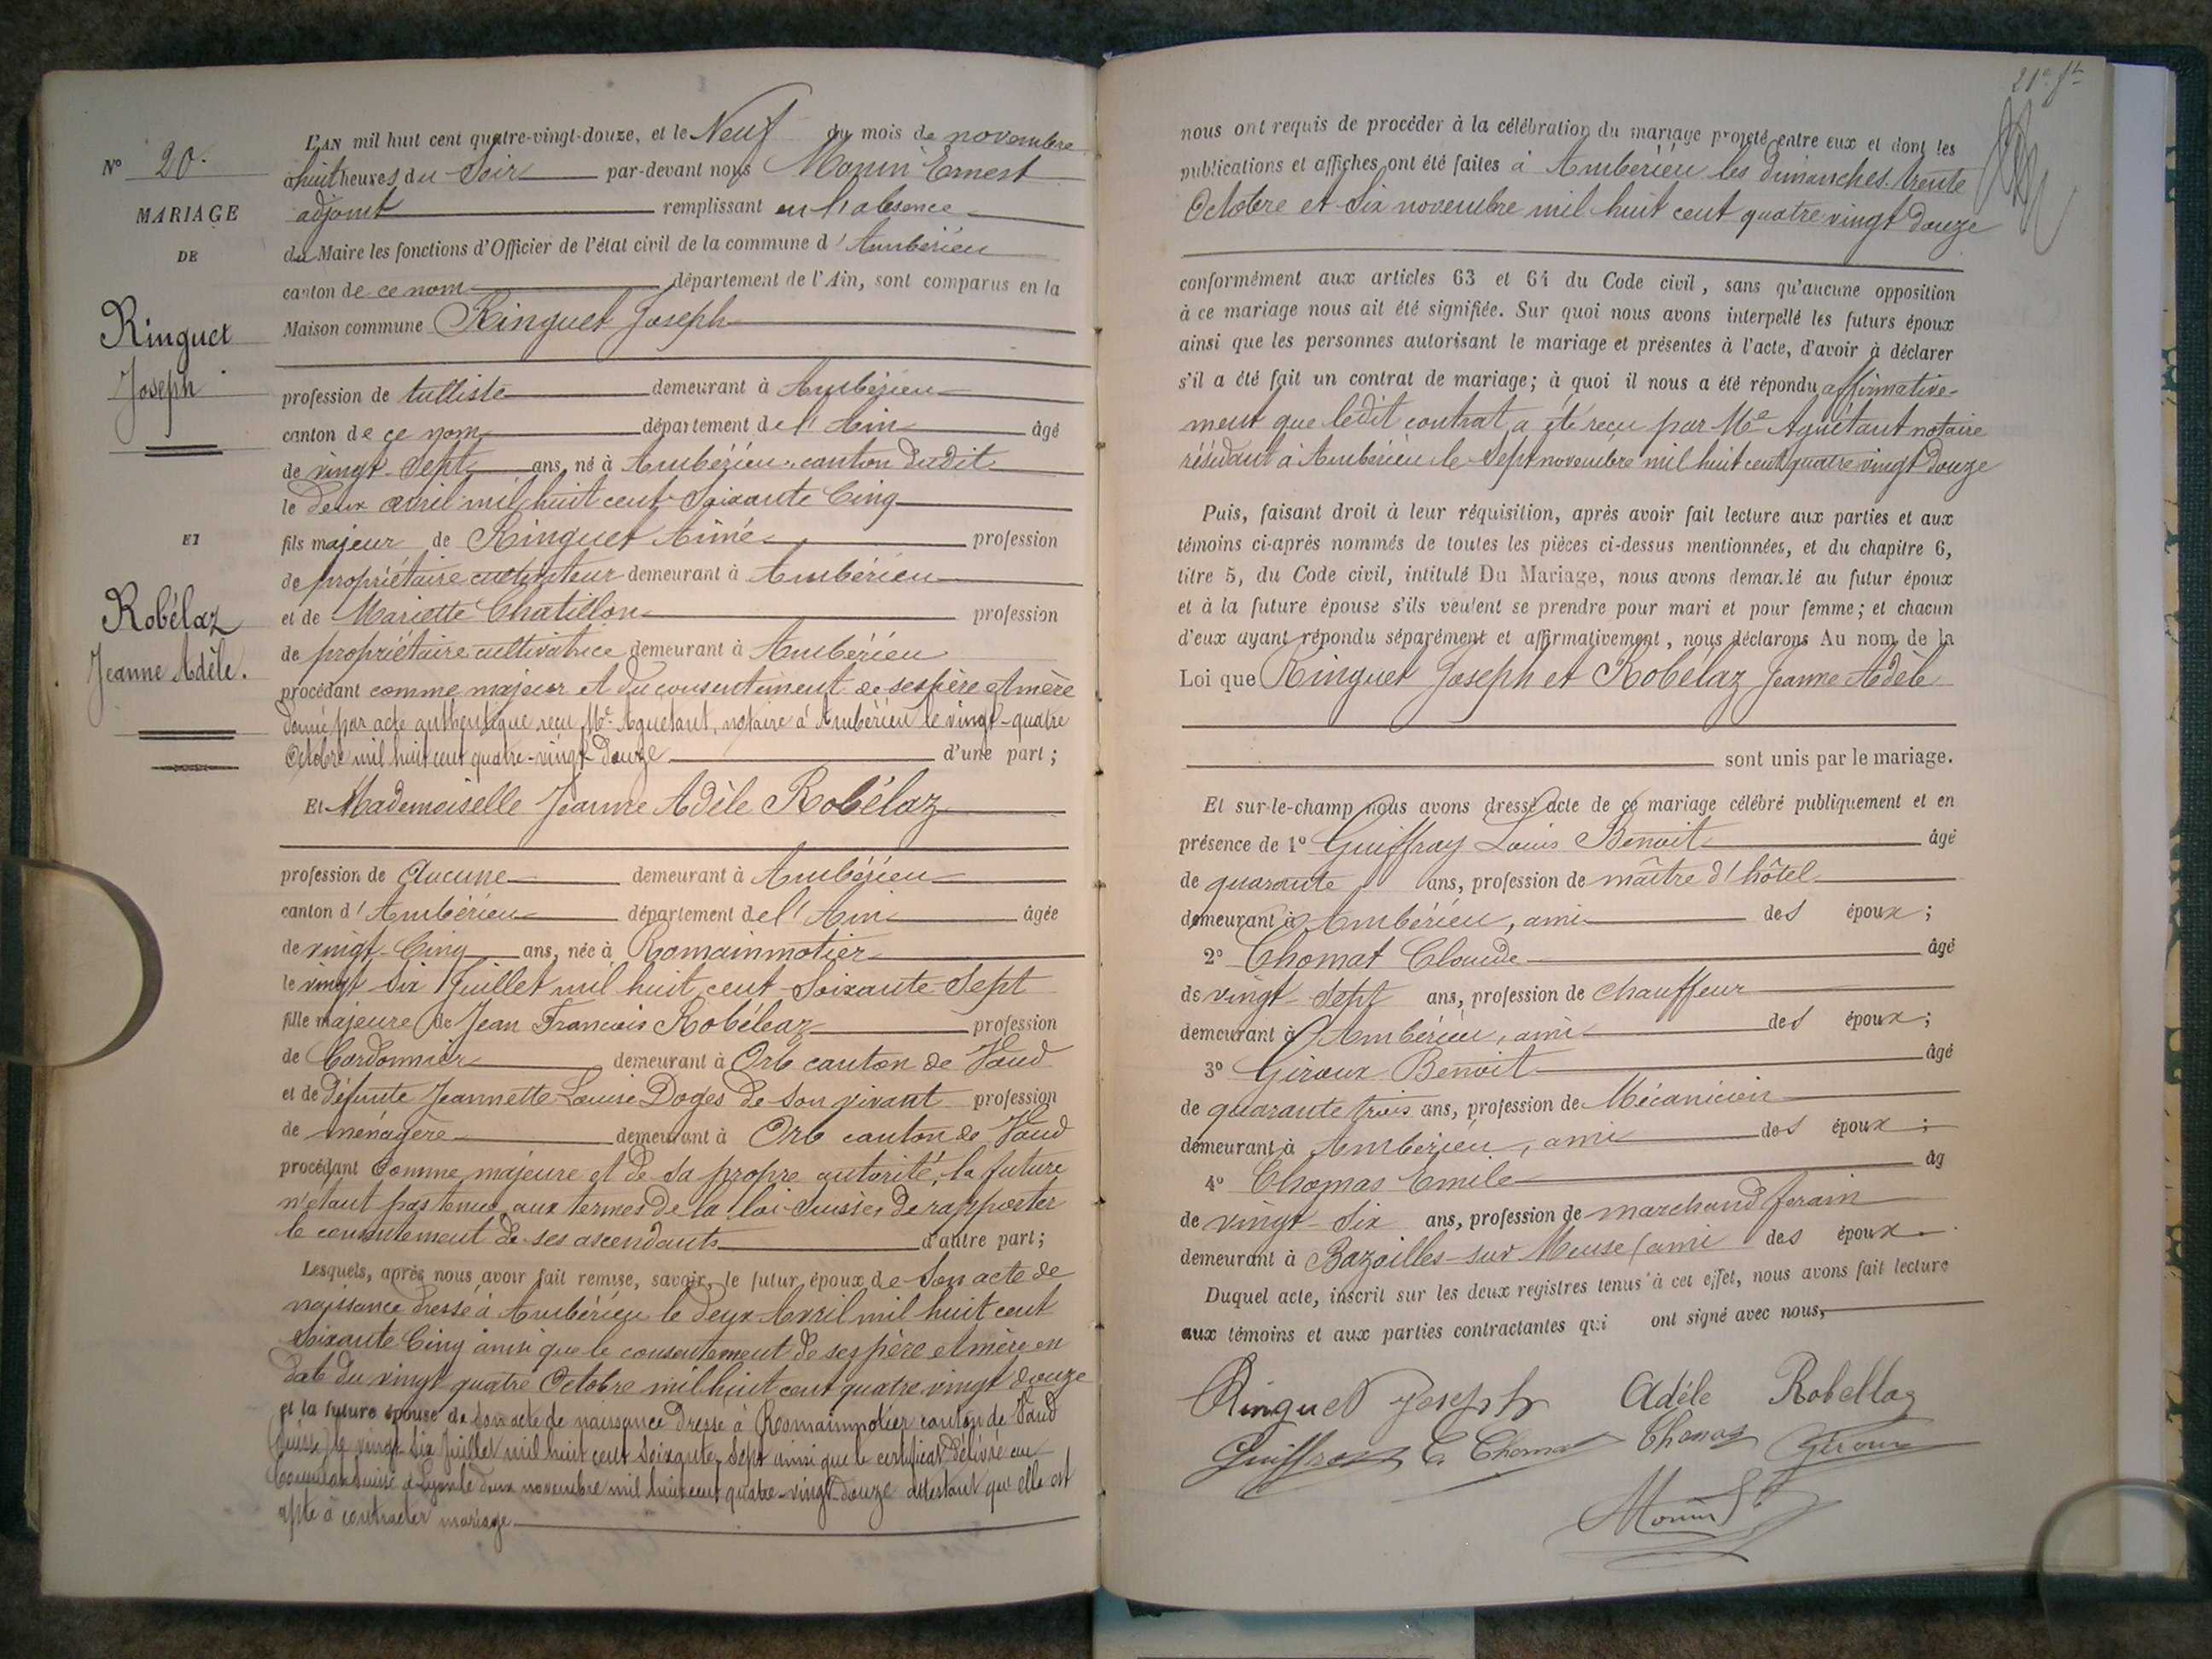 N° 20.
MARIAGE
DE
Ringuet
Joseph
ET
Robélaz
Jeanne Adèle.
L'AN mil huit cent quatre-vingt-douze, et le Neuf du mois de novembre
à huit heures du Soir par-devant nous Monin Ernest
adjoint remplissant en l'absence
du Maire les fonctions d'Officier de l'état civil de la commune d'Ambérieu
canton de ce nom département de l'Ain, sont comparus en la
Maison commune Ringuet Joseph
profession de tulliste demeurant à Ambérieu
canton de ce nom département de l'Ain âgé
de vingt-Sept ans, né à Ambérieu, canton dudit
le Deux avril mil huit cent Soixante Cinq
fils majeur de Ringuet Aimé profession
de propriétaire cultivateur demeurant à Ambérieu
et de Mariette Chatillon profession
de propriétaire cultivatrice demeurant à Ambérieu
procédant comme majeur et du consentement de ses père et mère
donné par acte authentique reçu Me Aguétant, notaire à Ambérieu le vingt-quatre
Octobre mil huit cent quatre-vingt Douze d'une part;
Et Mademoiselle Jeanne Adèle Robélaz
profession de Aucune demeurant à Ambérieu
canton d'Ambérieu département de l'Ain âgée
de vingt-Cinq ans, née à Romainmotier
le vingt Six Juillet mil huit cent Soixante-Sept
fille majeure de Jean François Robélaz profession
de Cordonnier demeurant à Orb canton de Vaud
et de Défunte Jeannette Louise Doges de son vivant profession
de ménagère demeurant à Orb canton de Vaud
procédant Comme majeure et de sa propre autorité, la future
n'étant pas tenue aux termes de la loi Suisse, de rapporter
le consentement de ses ascendants d'autre part;
Lesquels, après nous avoir fait remise, savoir, le futur époux de Son acte de
naissance dressé à Ambérieu le deux Avril mil huit cent
Soixante Cinq ainsi que le consentement de ses père et mère en
date du vingt quatre Octobre mil huit cent quatre vingt douze
et la future épouse de son acte de naissance dressé à Romainmotier canton de Vaud
(Suisse) le vingt-Six Juillet mil huit cent Soixante Sept ainsi que le certificat délivré au
Consulat Suisse à Lyon le deux novembre mil huit cent quatre-vingt-douze attestant qu'elle est
apte à contracter mariage
21e ft
nous ont requis de procéder à la célébration du mariage projeté entre eux et dont les
publications et affiches ont été faites à Ambérieu les dimanches trente
Octobre et Six novembre mil huit cent quatre vingt Douze
conformément aux articles 63 et 64 du Code civil, sans qu'aucune opposition
à ce mariage nous ait été signifiée. Sur quoi nous avons interpellé les futurs époux
ainsi que les personnes autorisant le mariage et présentes à l'acte, d'avoir à déclarer
s'il a été fait un contrat de mariage; à quoi il nous a été répondu affirmative-
ment que ledit contrat a été reçu par Me Aguétant notaire
résidant à Ambérieu le Sept novembre mil huit cent quatre vingt Douze
Puis, faisant droit à leur réquisition, après avoir fait lecture aux parties et aux
témoins ci-après nommés de toutes les pièces ci-dessus mentionnées, et du chapitre 6,
titre 5, du Code civil, intitulé Du Mariage, nous avons demandé au futur époux
et à la future épouse s'ils veulent se prendre pour mari et pour femme; et chacun
d'eux ayant répondu séparément et affirmativement, nous déclarons Au nom de la
Loi que Ringuet Joseph et Robélaz Jeanne Adèle
sont unis par le mariage.
Et sur-le-champ nous avons dressé acte de ce mariage célébré publiquement et en
présence de 1° Guiffray Louis Benoit âgé
de quarante ans, profession de maître d'hôtel
demeurant à Ambérieu, ami des époux;
2° Chomat Claude âgé
de vingt-Sept ans, profession de chauffeur
demeurant à Ambérieu, ami des époux;
3° Giroux Benoit âgé
de quarante trois ans, profession de Mécanicien
demeurant à Ambérieu, ami des époux;
4° Thomas Emile âg
de vingt-Six ans, profession de marchand forain
demeurant à Bazoilles-sur Meuse, ami des époux.
Duquel acte, inscrit sur les deux registres tenus à cet effet, nous avons fait lecture
aux témoins et aux parties contractantes qui ont signé avec nous,
Ringuet Joseph Adèle Robellaz
Guiffray C. Chomat Thomas Giroux
Monin